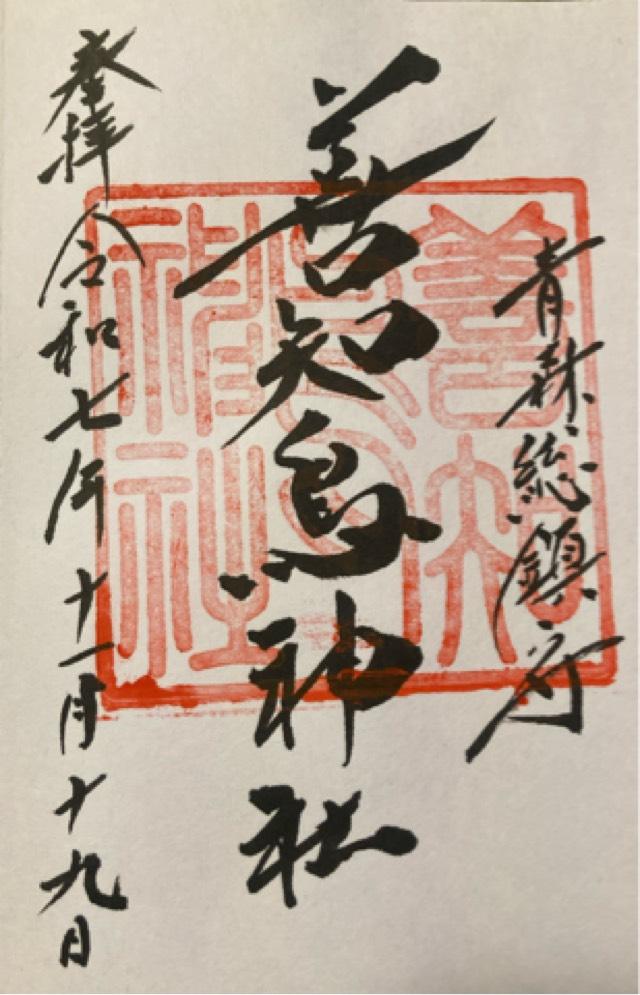 青森総鎮守
善知鳥神社
奉拝 令和七年十一月十九日
善知鳥神社